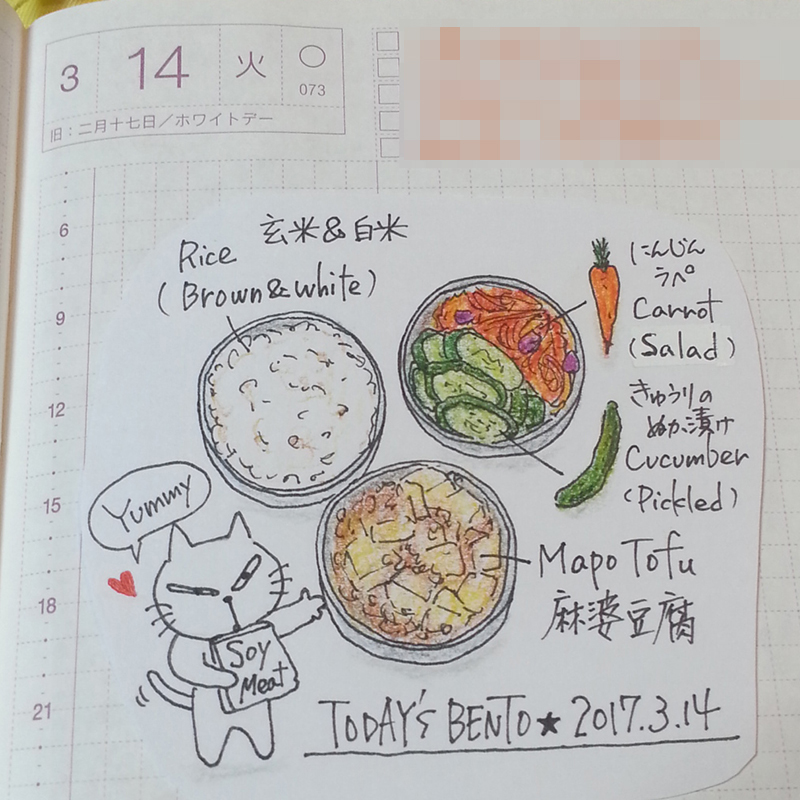 3
14
火
073
旧：二月十七日／ホワイトデー
6
9
12
15
18
21
玄米&白米
Rice
(Brown&white)
にんじん
ラペ
Carrot
(Salad)
きゅうりの
ぬか漬け
Cucumber
(Pickled)
Yummy
Mapo Tofu
麻婆豆腐
Soy
Meat
TODAY'S BENTO★2017.3.14